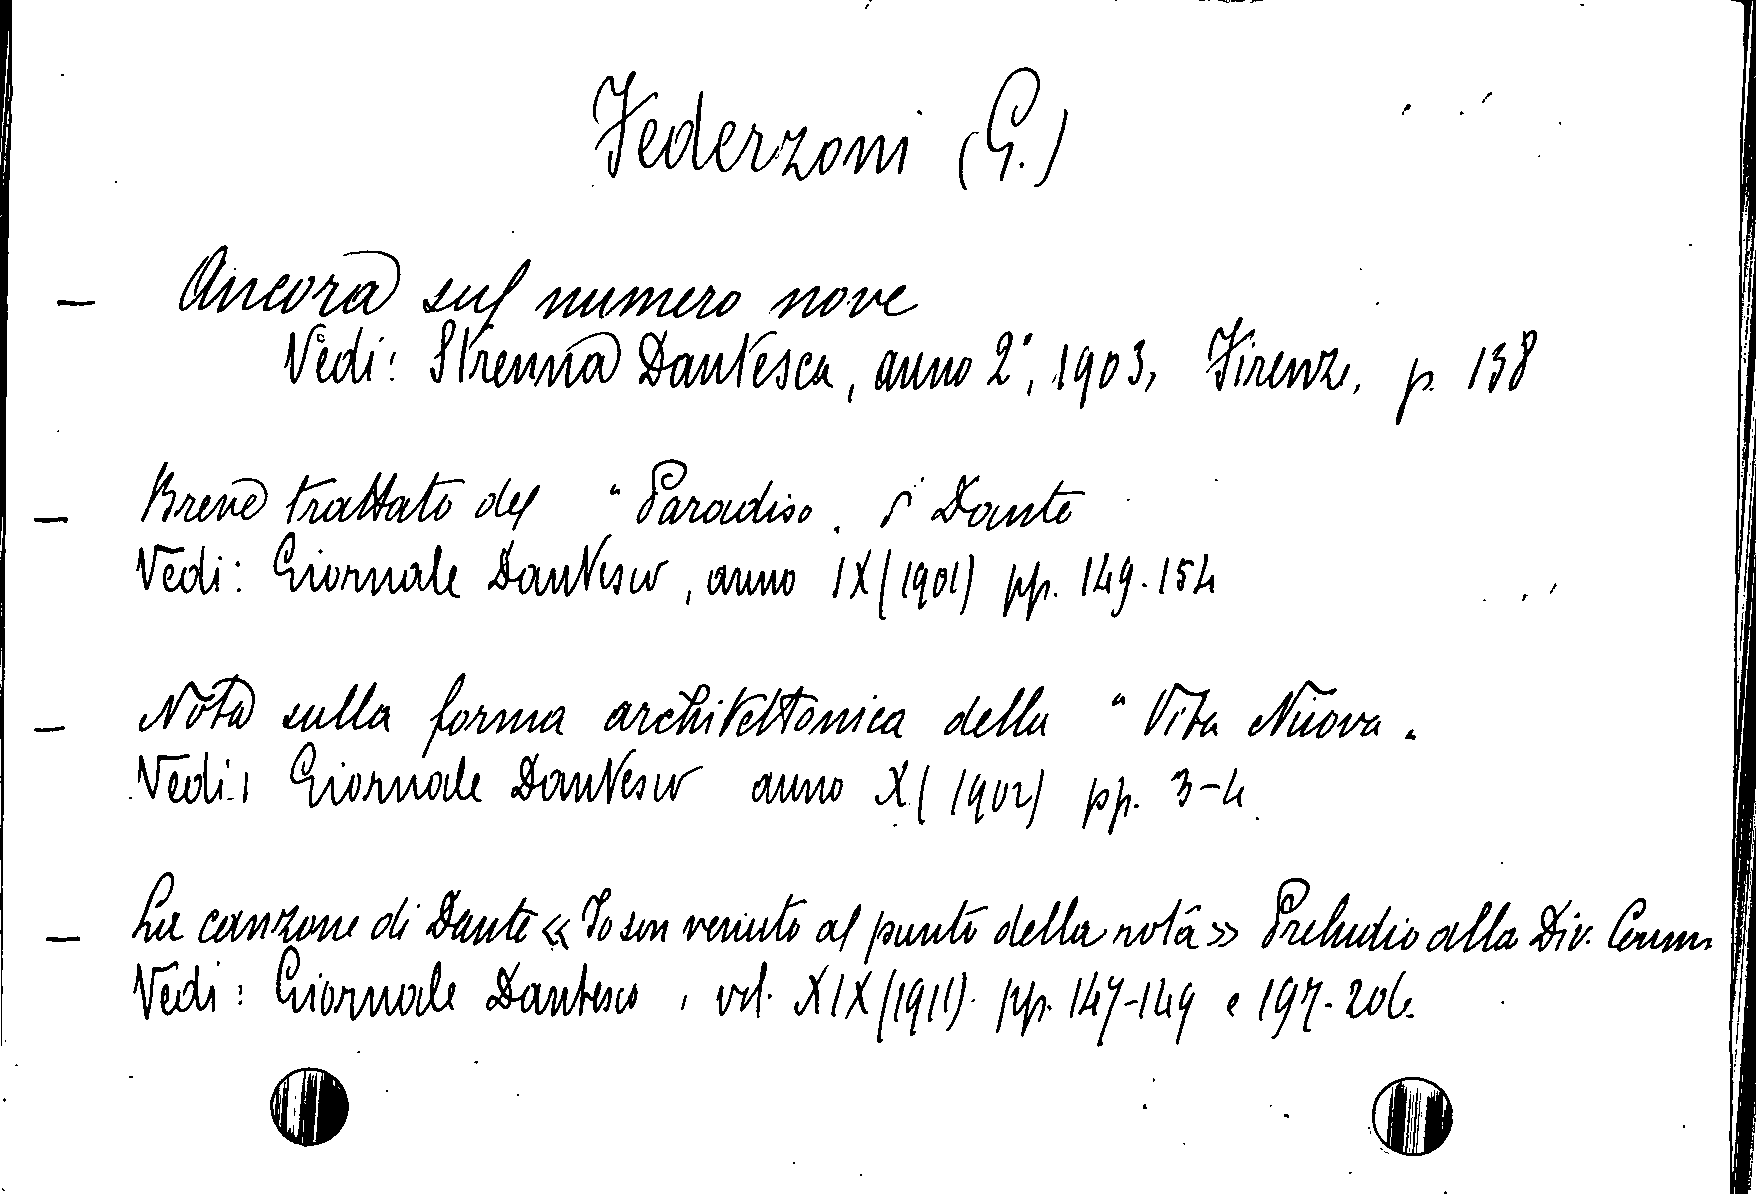 Federzoni (G.)
— Ancora sul numero nove
Vedi: Strenna Dantesca, anno 2°, 1903, Firenze, p. 138
— Breve trattato del "Paradiso" di Dante
Vedi: Giornale Dantesco, anno IX (1901) pp. 149-154
— Nota sulla forma architettonica della "Vita Nuova"
Vedi: Giornale Dantesco anno X (1902) pp. 3-4
— La canzone di Dante «Io son venuto al punto della rota» Preludio alla Div. Comm.
Vedi: Giornale Dantesco, vol. XIX (1911) pp. 147-149 e 197-206.